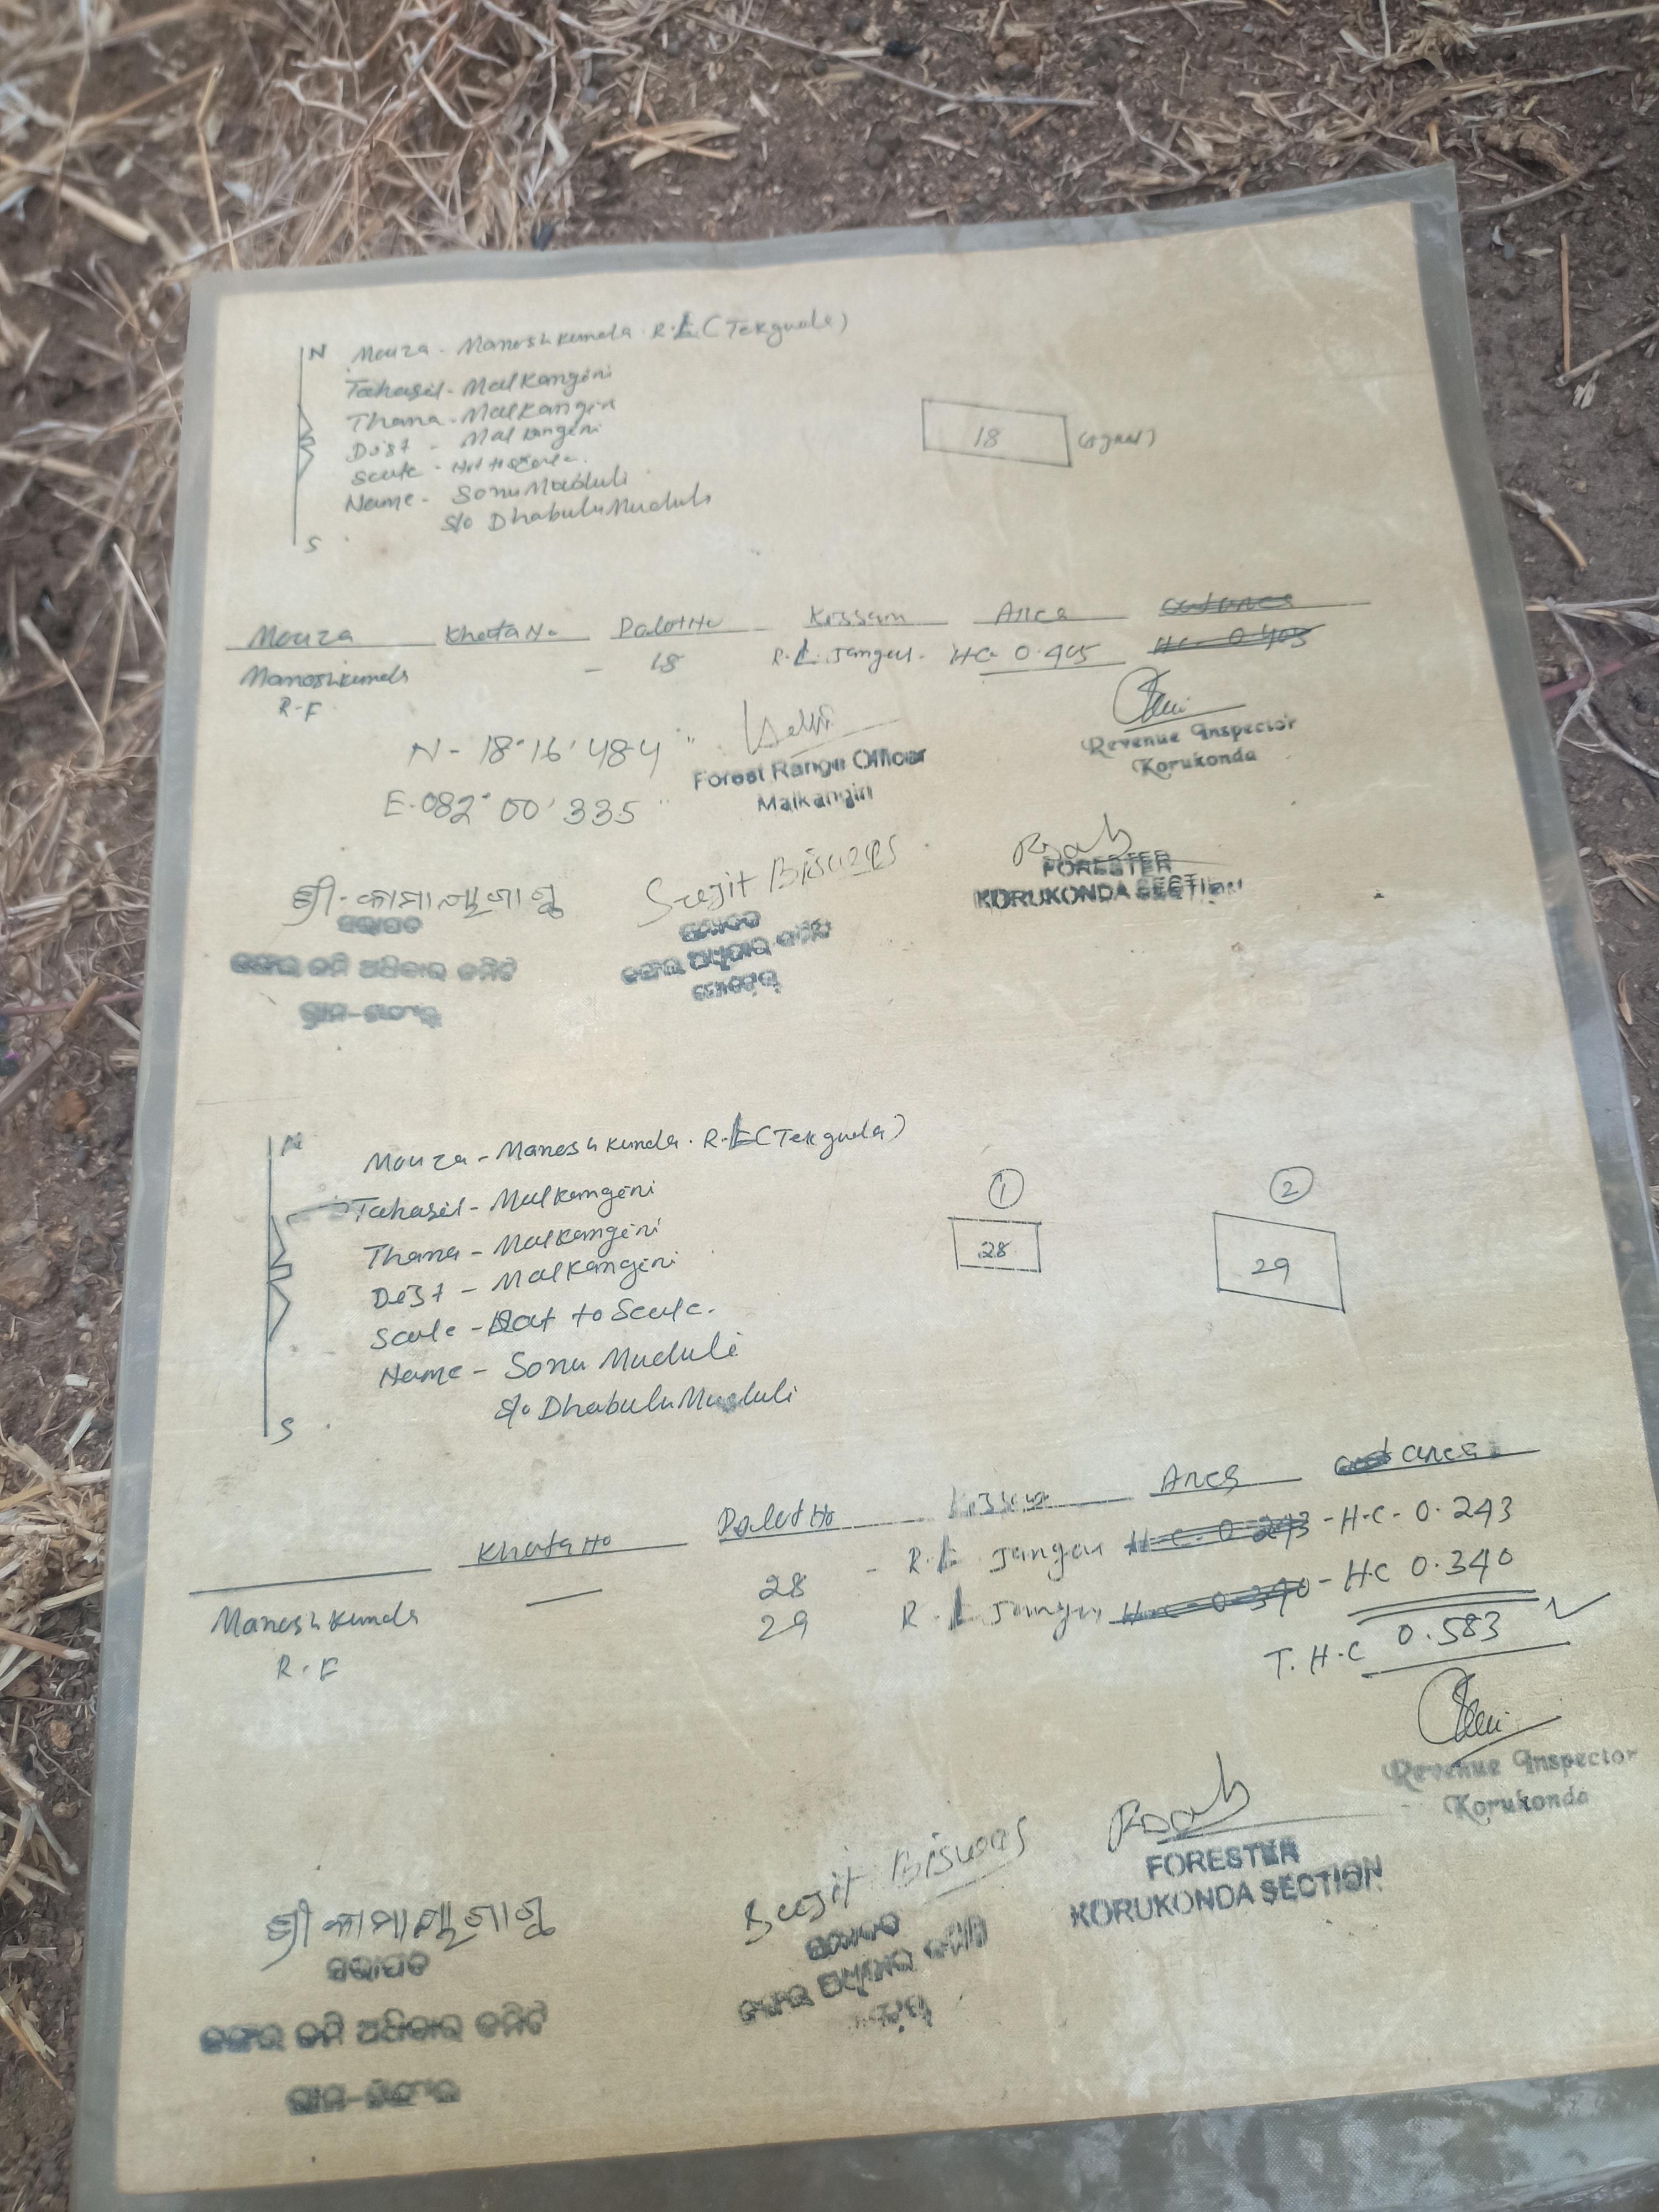 N
Mouza - Maneshkunda R.L (Tekguda)
Tahasil - Malkangiri
Thana - Malkangiri
Dist - Malkangiri
Scale - Not to Scale.
Name - Sonu Muduli
S/o Dhabulu Muduli
S
18
Mouza Khata No Palot No Kissam Area
Maneshkunda - 18 R.L. Jangal - HC- 0.405 HC- 0.405
R-F
N- 18°16'48.4"
E-082°00'335"
Forest Range Officer
Malkangiri
Revenue Inspector
Korukonda
Sugit Biswas
FORESTER
KORUKONDA SECTION
ସଭାପତି
ଜଙ୍ଗଲ ଜମି ଅଧିକାର କମିଟି
N
Mouza - Maneshkunda. R.L (Tekguda)
Tahasil - Malkangiri
Thana - Malkangiri
Dist - Malkangiri
Scale - Not to Scale.
Name - Sonu Muduli
S/o Dhabulu Muduli
S
1 2
28 29
Khata No Palot No Kissam Area area
Maneshkunda — 28 - R.L Jangal H-C-0.243 - H-C- 0.243
29 R.L Jangal H-C-0.340 - H-C 0.340
R-F
T. H-C 0.583
Revenue Inspector
Korukonda
Sugit Biswas
FORESTER
KORUKONDA SECTION
ସଭାପତି
ଜଙ୍ଗଲ ଜମି ଅଧିକାର କମିଟି